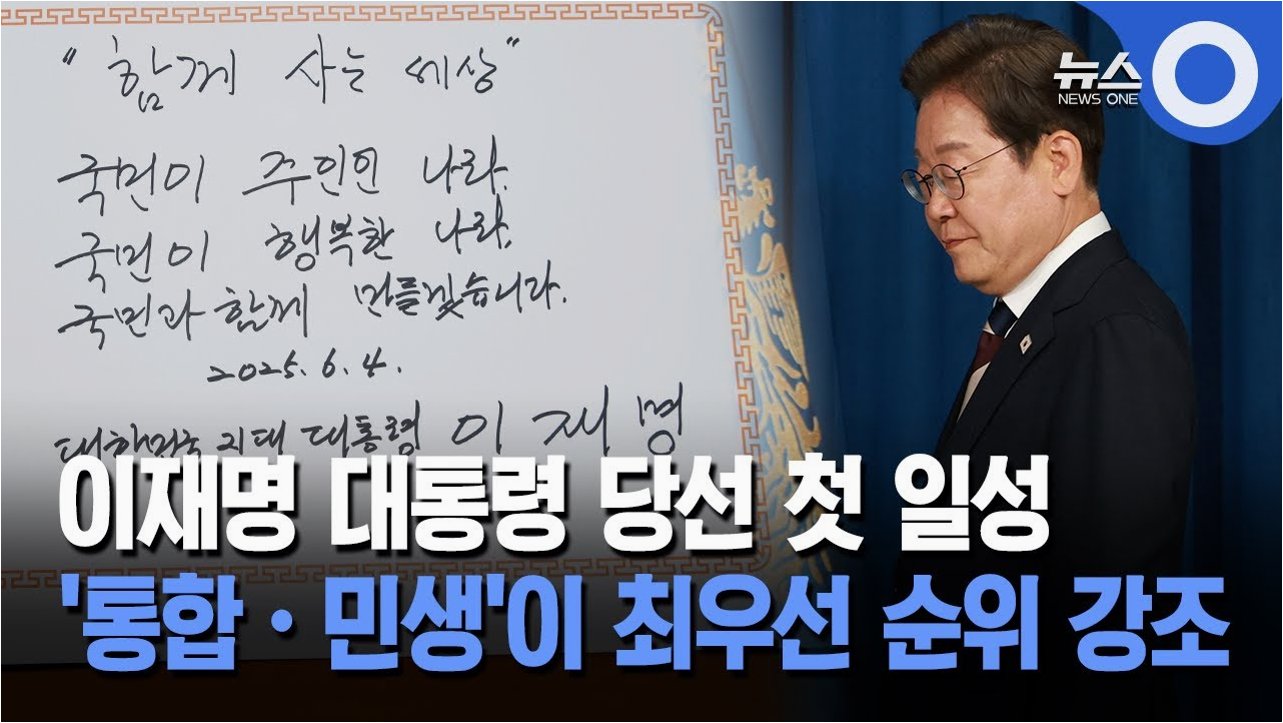 "함께 사는 세상"
국민이 주인인 나라,
국민이 행복한 나라,
국민과 함께 만들겠습니다.
2025. 6. 4.
대한민국 대통령 이재명
뉴스
NEWS ONE
이재명 대통령 당선 첫 일성
'통합·민생'이 최우선 순위 강조